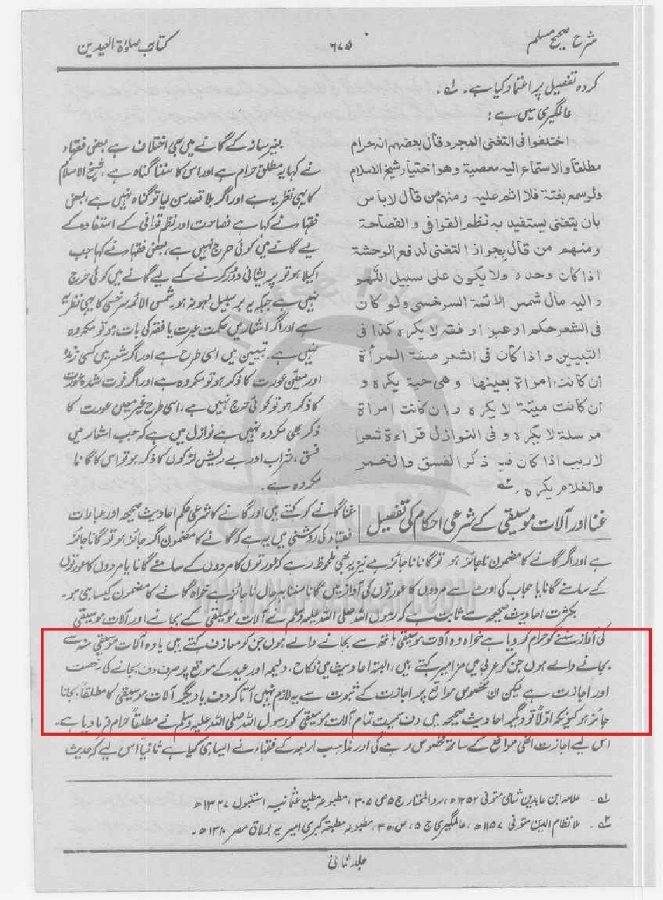 شرح صحیح مسلم
۶۷۵
کتاب صلوٰۃ العیدین
کردہ تفصیل پر اعتماد کیا ہے۔ لہ
عالمگیری میں ہے:
اختلفوا فی التغنی المجرد قال بعضهم انه حرام
مطلقا والاستماع الیه معصیة وهو اختیار شیخ الاسلام
ولو سمع بغتة فلا اثم علیه ومنهم من قال لا باس
بان یتغنی یستفید به نظم القوافی و الفصاحة
ومنهم من قال یجوز التغنی لدفع الوحشة
اذا کان وحده ولا یکون علی سبیل اللهو
و الیه مال شمس الائمة السرخسی ولو کان
فی الشعر حکم او عبر او فقه لا یکره کذا فی
التبیین و اذا کان فی الشعر صفة المرأة
ان کانت امراة بعینها وهی حیة یکره و
ان کانت میتة لا یکره و ان کانت امراة
مرسلة لا یکره و فی النوازل قراءة شعر
الادب اذا کان فیه ذکر الفسق والخمر
والغلام یکره۔
بغیر ساز کے گانے میں بھی اختلاف ہے بعض فقہاء
نے کہا یہ مطلق حرام ہے اور اس کا سننا گناہ ہے، شیخ الاسلام
کا یہی نظریہ ہے اور اگر بلا قصد سن لیا تو گناہ نہیں ہے، بعض
فقہاء نے کہا ہے فصاحت اور نظم قوافی کے استفادہ کے
لیے گانے میں کوئی حرج نہیں ہے، بعض فقہاء نے کہا جب
اکیلا ہو تو پریشانی دور کرنے کے لیے گانے میں کوئی حرج
نہیں ہے جبکہ یہ بر سبیل لہو نہ ہو، شمس الائمہ سرخسی کا یہی نظریہ
ہے اور اگر اشعار میں حکمت، عبرت یا فقہ کی بات ہو تو مکروہ
نہیں ہے، تبیین میں اسی طرح ہے اور اگر شعر میں کسی زندہ
اور معین عورت کا ذکر ہو تو مکروہ ہے اور اگر فوت شدہ عورت
کا ذکر ہو تو کوئی حرج نہیں ہے، اسی طرح غیر معین عورت کا
ذکر بھی مکروہ نہیں ہے نوازل میں ہے کہ جب اشعار میں
فسق، شراب اور بے ریش لڑکوں کا ذکر ہو تو اس کا گانا
مکروہ ہے۔
غنا اور آلات موسیقی کے شرعی احکام کی تفصیل
غنا گانے کو کہتے ہیں اور گانے کا شرعی حکم احادیث صحیحہ اور عبارات
فقہاء کی روشنی میں یہ ہے کہ گانے کا مضمون اگر جائز ہو تو گانا جائز
ہے اور اگر گانے کا مضمون ناجائز ہو تو گانا ناجائز ہے نیز یہ بھی ملحوظ رہے کہ عورتوں کا مردوں کے سامنے گانا یا مردوں کا عورتوں
کے سامنے گانا یا حجاب کی اوٹ سے مردوں کا عورتوں کی آواز میں گانا سننا بہر حال ناجائز ہے خواہ گانے کا مضمون کیسا ہی ہو۔
بکثرت احادیث صحیحہ سے ثابت ہے کہ رسول اللہ صلی اللہ علیہ وسلم نے آلات موسیقی کے بجانے اور آلات موسیقی
کی آواز سننے کو حرام کر دیا ہے خواہ وہ آلات موسیقی ہاتھ سے بجانے والے ہوں جن کو معازف کہتے ہیں یا وہ آلات موسیقی منہ سے
بجانے والے ہوں جن کو عربی میں مزامیر کہتے ہیں، البتہ احادیث میں نکاح، ولیمہ اور عید کے موقع پر صرف دف بجانے کی رخصت
اور اجازت ہے لیکن ان مخصوص مواقع پر اجازت کے ثبوت سے یہ لازم نہیں آتا کہ دف یا دیگر آلات موسیقی کا مطلقاً بجانا
جائز ہو کیونکہ اولاً تو دیگر احادیث صحیحہ میں دف سمیت تمام آلات موسیقی کو رسول اللہ صلی اللہ علیہ وسلم نے مطلقاً حرام فرما دیا ہے۔
اس لیے اجازت انہی مواقع کے ساتھ مخصوص رہے گی اور مذاہب اربعہ کے فقہاء نے ایسا ہی کیا ہے ثانیاً اس لیے کہ حدیث
لہ۔ علامہ ابن عابدین شامی متوفی ۱۲۵۲ھ، رد المختار ج ۵ ص ۳۰۵، مطبوعہ مطبع عثمانیہ استنبول ۱۳۲۷ھ
۲ہ۔ ملا نظام الدین متوفی ۱۱۵۷ھ، عالمگیری ج ۵، ص ، مطبوعہ مطبعہ کبریٰ امیریہ بولاق مصر ۱۳۱۰ھ۔
جلد ثانی